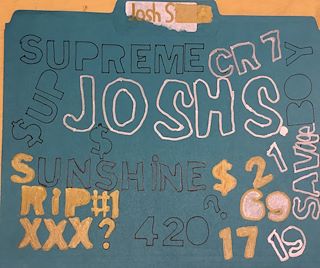 Josh S
SUPREME CR7
$UP JOSH S. BOY
$ SAVage
SUNSHiNE $ 2 1
RiP #1 ? 69
XXX? 420 17 19